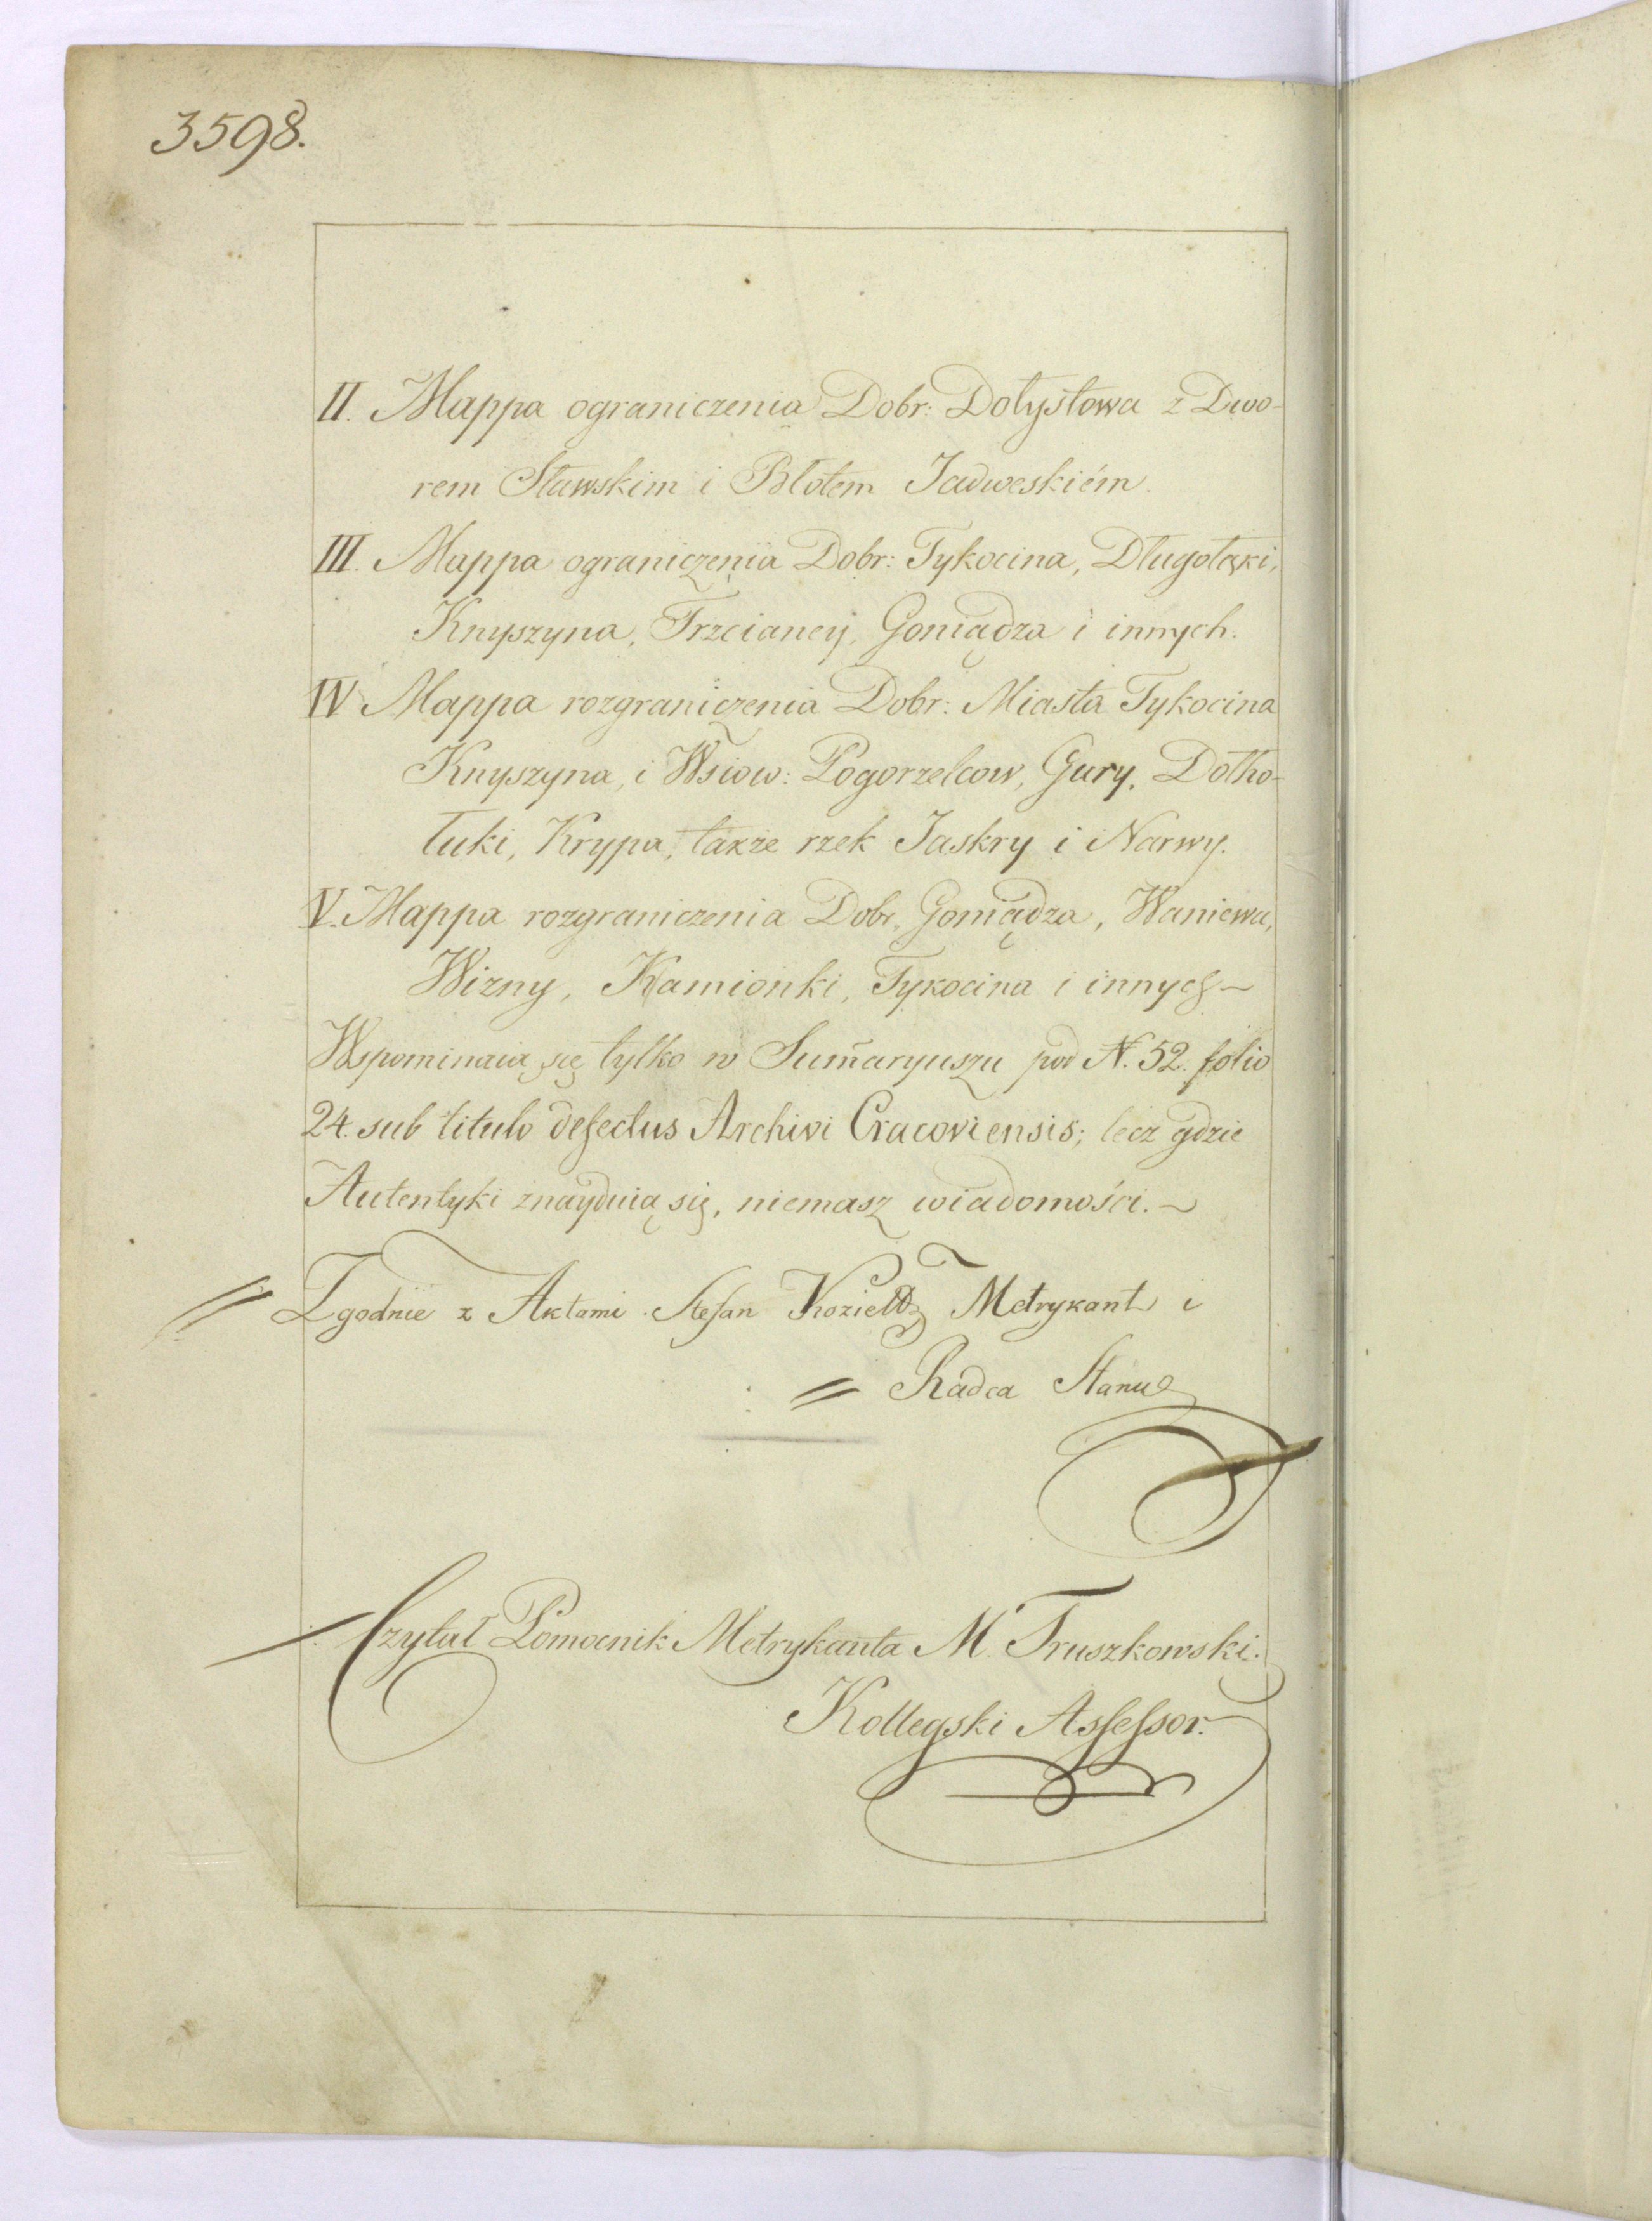 3598.
II. Mappa ograniczenia Dobr: Dolystowa z Dwo-
rem Sławskim i Błotem Jadweskiém.
III. Mappa ograniczenia Dobr: Tykocina, Długołąki,
Knyszyna, Trzcianey, Goniądza i innych.
IV Mappa rozgraniczenia Dobr: Miasta Tykocina
Knyszyna, i Wsiow: Pogorzelcow, Gury, Dołho-
łuki, Krypa, także rzek Jaskry i Narwy.
V. Mappa rozgraniczenia Dobr. Goniądza, Waniewa,
Wizny, Kamionki, Tykocina i innych ~
Wspominaią się tylko w Sum̃aryuszu pod N. 52. folio
24. sub titulo defectus Archivi Cracoviensis; lecz gdzie
Autentyki znayduią się, niemasz wiadomości. ~
Zgodnie z Aktami Stefan Koziełł Metrykant i
Radca Stanu
Czytał Pomocnik Metrykanta M. Truszkowski.
Kollegski Assessor.